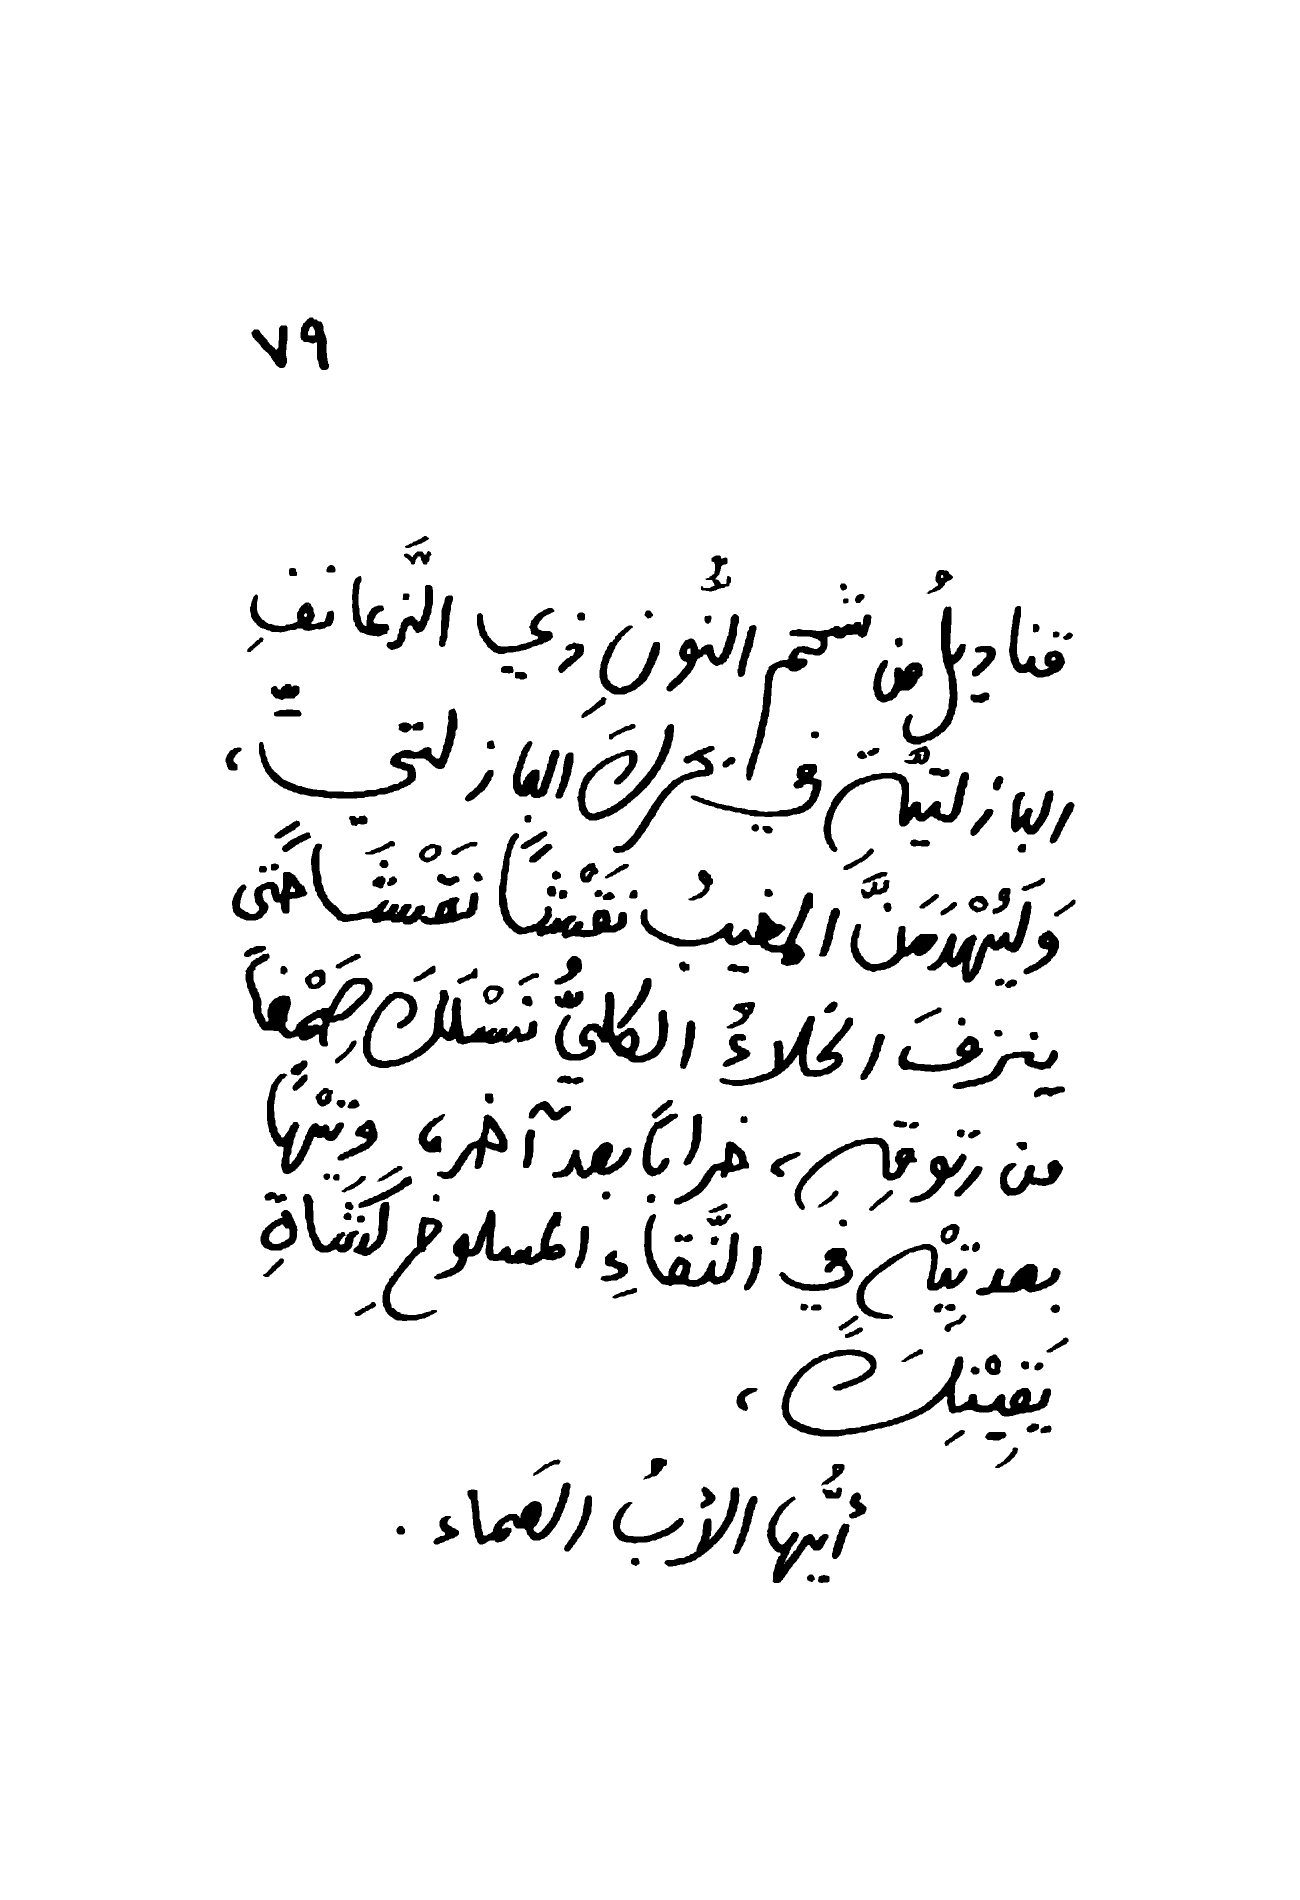 ٧٩
قناديلُ من شحم النُّونِ ذي الزَّعانفِ
البازلتيّة في بحركَ البازلتيّ،
وَلَيُهْدَمَنَّ المغيبُ نَقْشًا نَقْشَاً حتى
ينزفَ الخلاءُ الكليُّ نَسْلَكَ ضِمْغاً
من رتوقِهِ، خراباً بعد آخر، وتِيْهًا
بعد تيْهٍ في النَّقاءِ المسلوخِ كَشَاةِ
يَقِيْنِكَ،
أيُّها الأبُ العَماء.